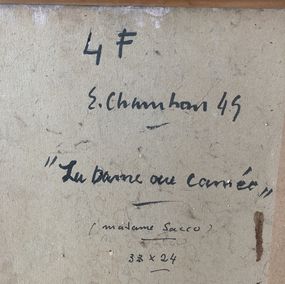 4 F
E. Chambon 49
"La Dame au carnier"
(madame Sacco)
33 x 24